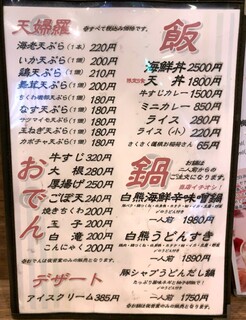 天婦羅
※すべて税込み価格です。
海老天ぷら(1本) 220円
いか天ぷら(1個) 200円
鶏天ぷら(1個) 210円
舞茸天ぷら(1個) 200円
ちくわ磯部天ぷら(1個) 180円
なす天ぷら(1個) 180円
サツマイモ天ぷら(1個) 180円
玉ねぎ天ぷら(1個) 180円
カボチャ天ぷら(1個) 180円
おでん
牛すじ 320円
大根 280円
厚揚げ 250円
ごぼ天 240円
焼きちくわ 200円
玉子 200円
白滝 200円
こんにゃく 200円
デザート
アイスクリーム 385円
飯
海鮮丼 2500円
天丼 1800円
牛すじカレー 1500円
ミニカレー 850円
ライス 280円
ライス(小) 220円
さくさく 65円
鍋
お鍋は
二人前から
ご注文になります。
当店イチオシ!
白熊海鮮辛味噌鍋
一人前 1980円
白熊うどんすき
一人前 1890円
豚シャブうどんだし鍋
一人前 1750円